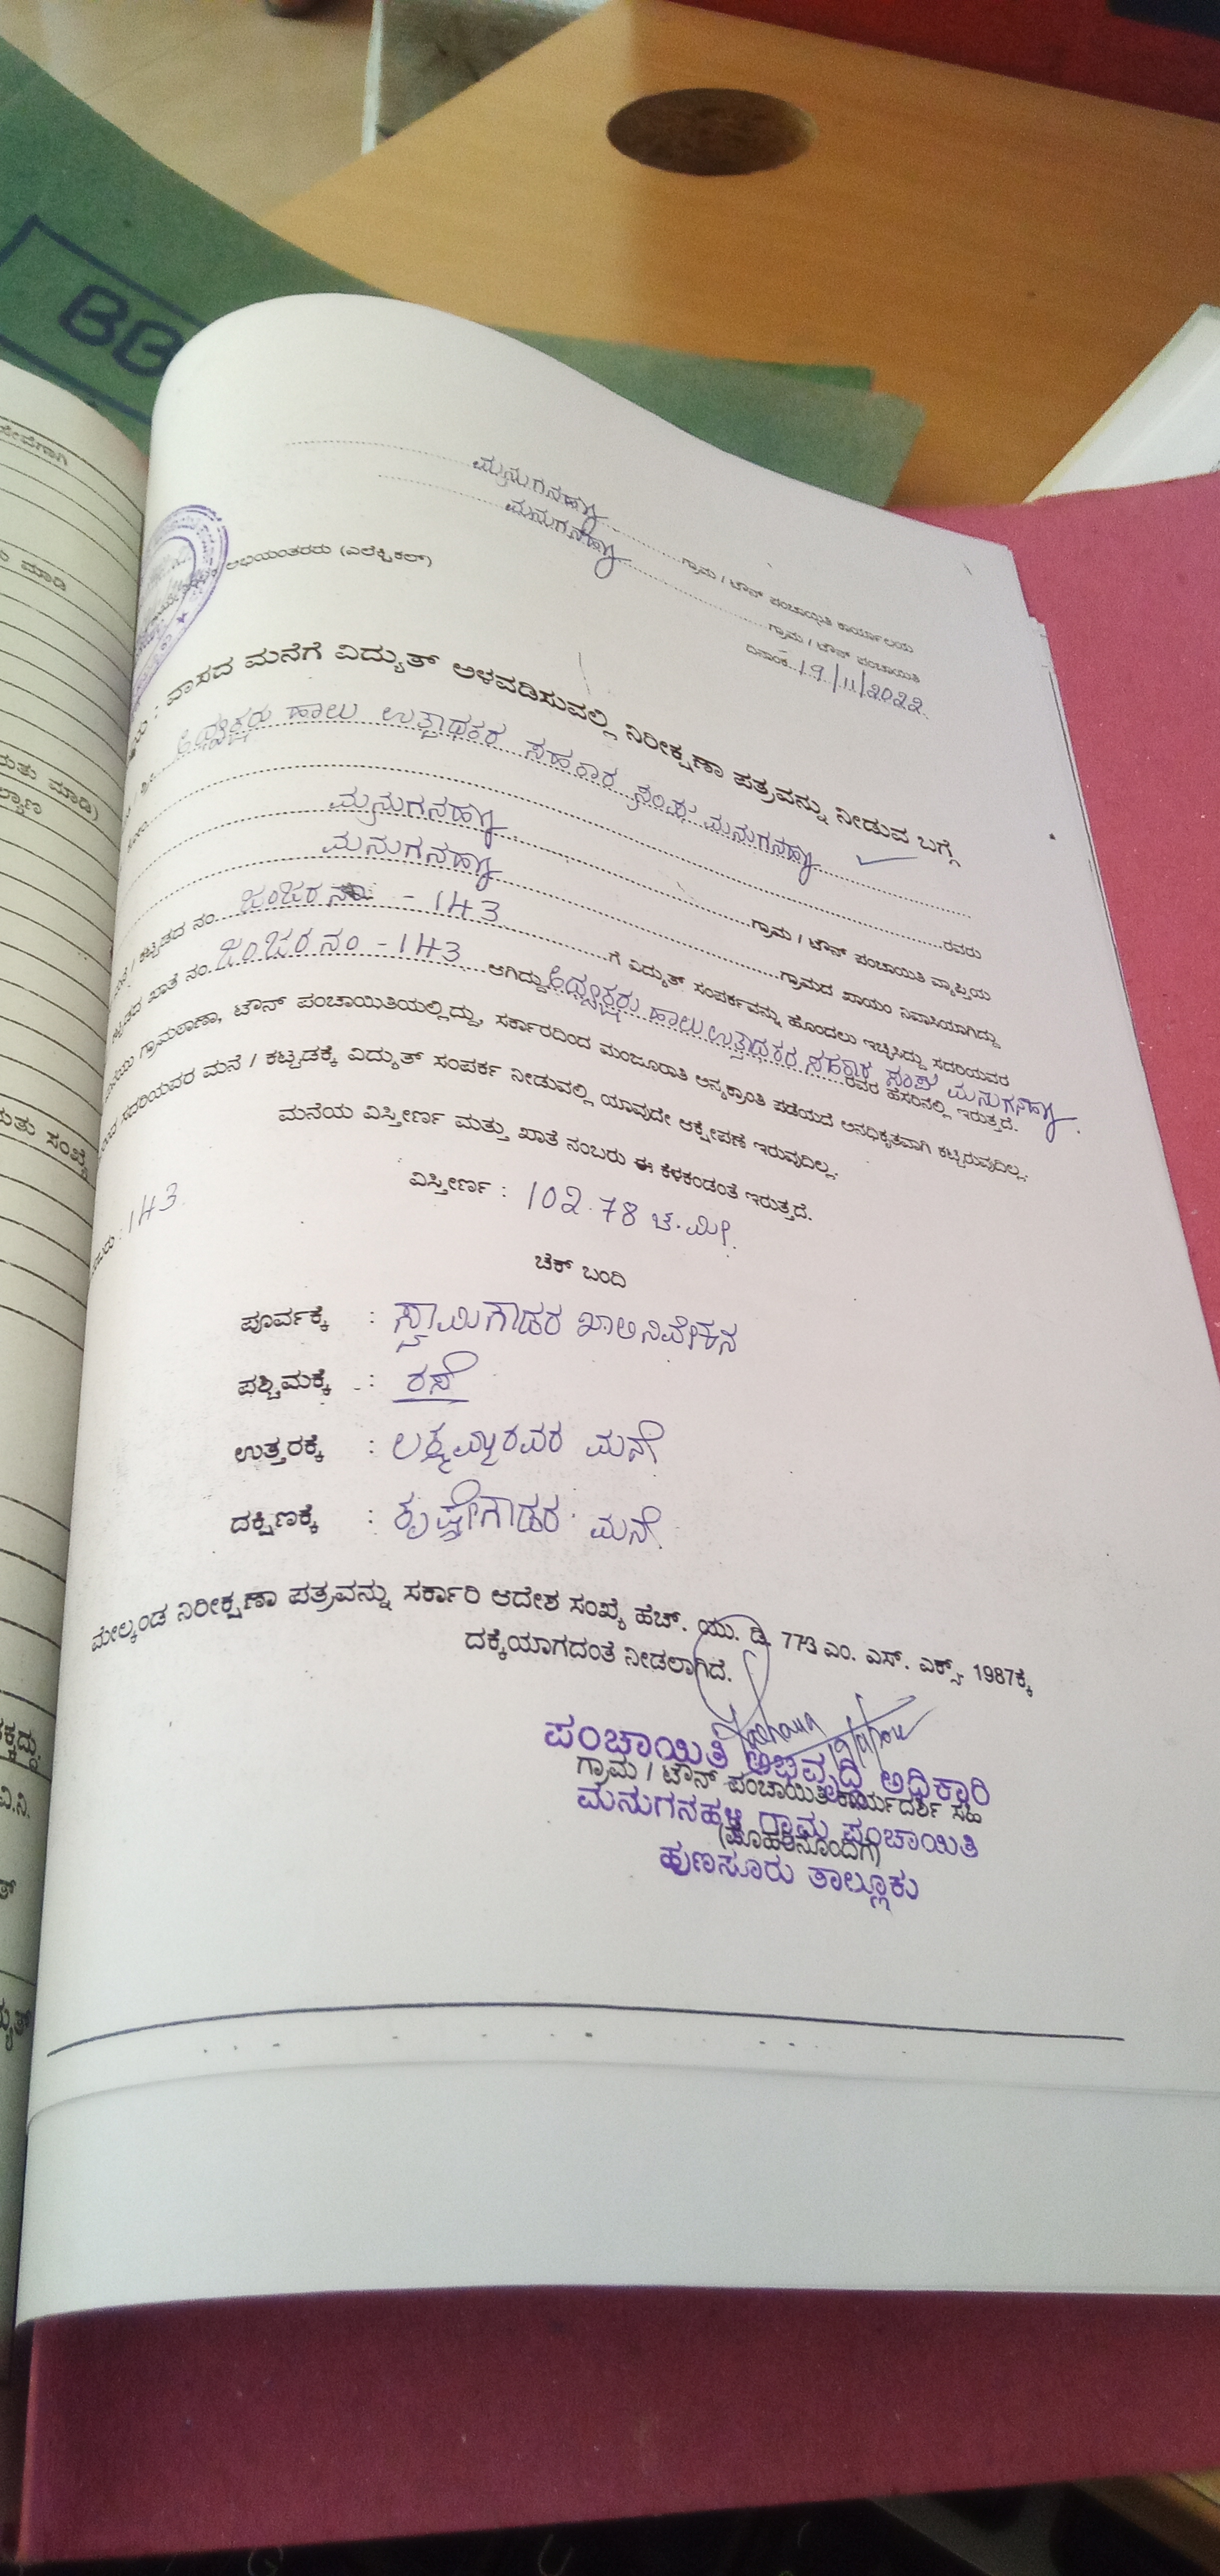 BB
ಮನುಗನಹಳ್ಳಿ ಗ್ರಾಮ / ಟೌನ್ ಪಂಚಾಯಿತಿ ಕಾರ್ಯಾಲಯ
ಮನುಗನಹಳ್ಳಿ ಗ್ರಾಮ / ಟೌನ್ ಪಂಚಾಯಿತಿ
ದಿನಾಂಕ 19/11/2022
ಅಭಿಯಂತರರು (ಎಲೆಕ್ಟ್ರಿಕಲ್)
ವಾಸದ ಮನೆಗೆ ವಿದ್ಯುತ್ ಅಳವಡಿಸುವಲ್ಲಿ ನಿರೀಕ್ಷಣಾ ಪತ್ರವನ್ನು ನೀಡುವ ಬಗ್ಗೆ
ಅಧ್ಯಕ್ಷರು ಹಾಲು ಉತ್ಪಾಧಕರ ಸಹಕಾರ ಸಂಘ ಮನುಗನಹಳ್ಳಿ
ರವರು
ಮನುಗನಹಳ್ಳಿ ಗ್ರಾಮ / ಟೌನ್ ಪಂಚಾಯಿತಿ ವ್ಯಾಪ್ತಿಯ
ಮನುಗನಹಳ್ಳಿ ಗ್ರಾಮದ ಖಾಯಂ ನಿವಾಸಿಯಾಗಿದ್ದು
/ ಕಟ್ಟಡದ ನಂ. ಜಂಜರ ನಂ - 143 ಗೆ ವಿದ್ಯುತ್ ಸಂಪರ್ಕವನ್ನು ಹೊಂದಲು ಇಚ್ಛಿಸಿದ್ದು ಸದರಿಯವರ
ಖಾತೆ ನಂ. ಜಂಜರ ನಂ - 143 ಆಗಿದ್ದು ಅಧ್ಯಕ್ಷರು ಹಾಲು ಉತ್ಪಾಧಕರ ಸಹಕಾರ ಸಂಘ ಮನುಗನಹಳ್ಳಿ. ರವರ ಹೆಸರಿನಲ್ಲಿ ಇರುತ್ತದೆ.
ಗ್ರಾಮಠಾಣಾ, ಟೌನ್ ಪಂಚಾಯಿತಿಯಲ್ಲಿದ್ದು, ಸರ್ಕಾರದಿಂದ ಮಂಜೂರಾತಿ ಅನ್ಯಕ್ರಾಂತಿ ಪಡೆಯದೆ ಅನಧಿಕೃತವಾಗಿ ಕಟ್ಟಿರುವುದಿಲ್ಲ.
ಸದರಿಯವರ ಮನೆ / ಕಟ್ಟಡಕ್ಕೆ ವಿದ್ಯುತ್ ಸಂಪರ್ಕ ನೀಡುವಲ್ಲಿ ಯಾವುದೇ ಆಕ್ಷೇಪಣೆ ಇರುವುದಿಲ್ಲ.
ಮನೆಯ ವಿಸ್ತೀರ್ಣ ಮತ್ತು ಖಾತೆ ನಂಬರು ಈ ಕೆಳಕಂಡಂತೆ ಇರುತ್ತದೆ.
: 143 ವಿಸ್ತೀರ್ಣ : 102.78 ಚ.ಮೀ.
ಚೆಕ್ ಬಂದಿ
ಪೂರ್ವಕ್ಕೆ : ಸ್ವಾಮಿಗೌಡರ ಖಾಲಿ ನಿವೇಶನ
ಪಶ್ಚಿಮಕ್ಕೆ : ರಸ್ತೆ
ಉತ್ತರಕ್ಕೆ : ಲಕ್ಷ್ಮಮ್ಮರವರ ಮನೆ
ದಕ್ಷಿಣಕ್ಕೆ : ಕೃಷ್ಣೇಗೌಡರ ಮನೆ
ಮೇಲ್ಕಂಡ ನಿರೀಕ್ಷಣಾ ಪತ್ರವನ್ನು ಸರ್ಕಾರಿ ಆದೇಶ ಸಂಖ್ಯೆ ಹೆಚ್. ಯು. ಡಿ. 773 ಎಂ. ಎಸ್. ಎಕ್ಸ್. 1987ಕ್ಕೆ
ದಕ್ಕೆಯಾಗದಂತೆ ನೀಡಲಾಗಿದೆ.
ಪಂಚಾಯಿತಿ ಅಭಿವೃದ್ಧಿ ಅಧಿಕಾರಿ
ಗ್ರಾಮ / ಟೌನ್ ಪಂಚಾಯಿತಿ ಕಾರ್ಯದರ್ಶಿ ಸಹಿ
ಮನುಗನಹಳ್ಳಿ ಗ್ರಾಮ ಪಂಚಾಯಿತಿ
(ಮೊಹರಿನೊಂದಿಗೆ)
ಹುಣಸೂರು ತಾಲ್ಲೂಕು